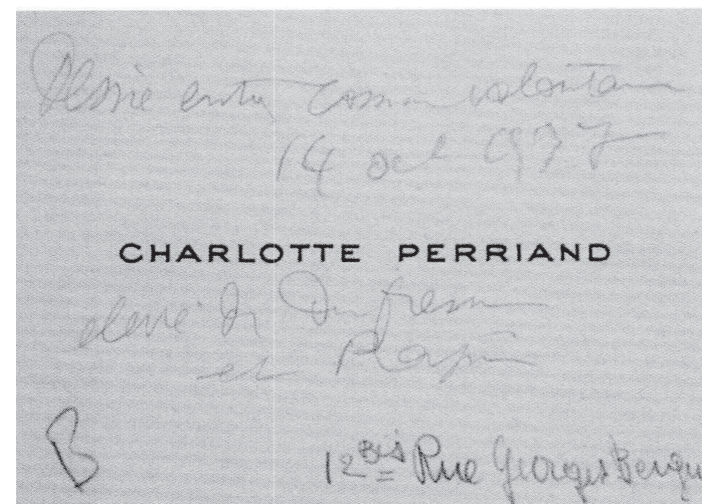 Désire entrer comme volontaire
14 oct 1927
CHARLOTTE PERRIAND
eleve de Dufresne
et Rapin
B
12 Bis Rue Georges Berger